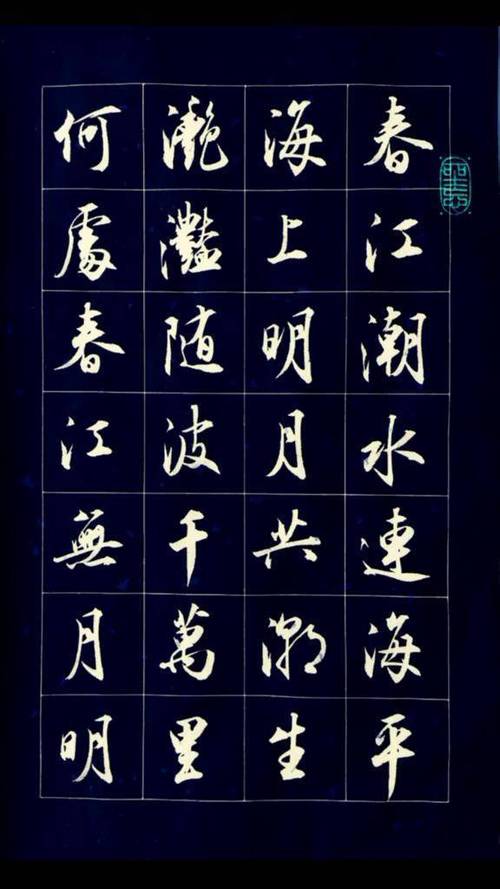 春江潮水連海平
海上明月共潮生
滟灩随波千萬里
何處春江無月明